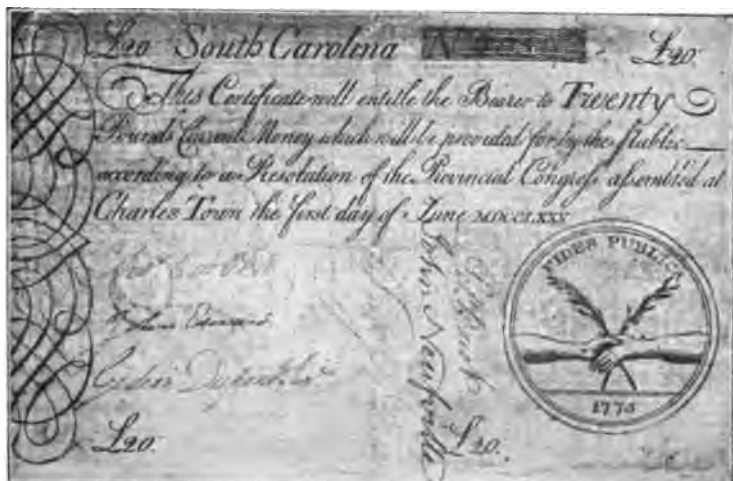 £20 South Carolina No £20.
This Certificate will entitle the Bearer to Twenty
Pounds Current Money which will be provided for by the Public
according to a Resolution of the Provincial Congress assembled at
Charles Town the first day of June MDCCLXXV
FIDES PUBLICA
Edwards
John Neufville
1775
£20. £20.